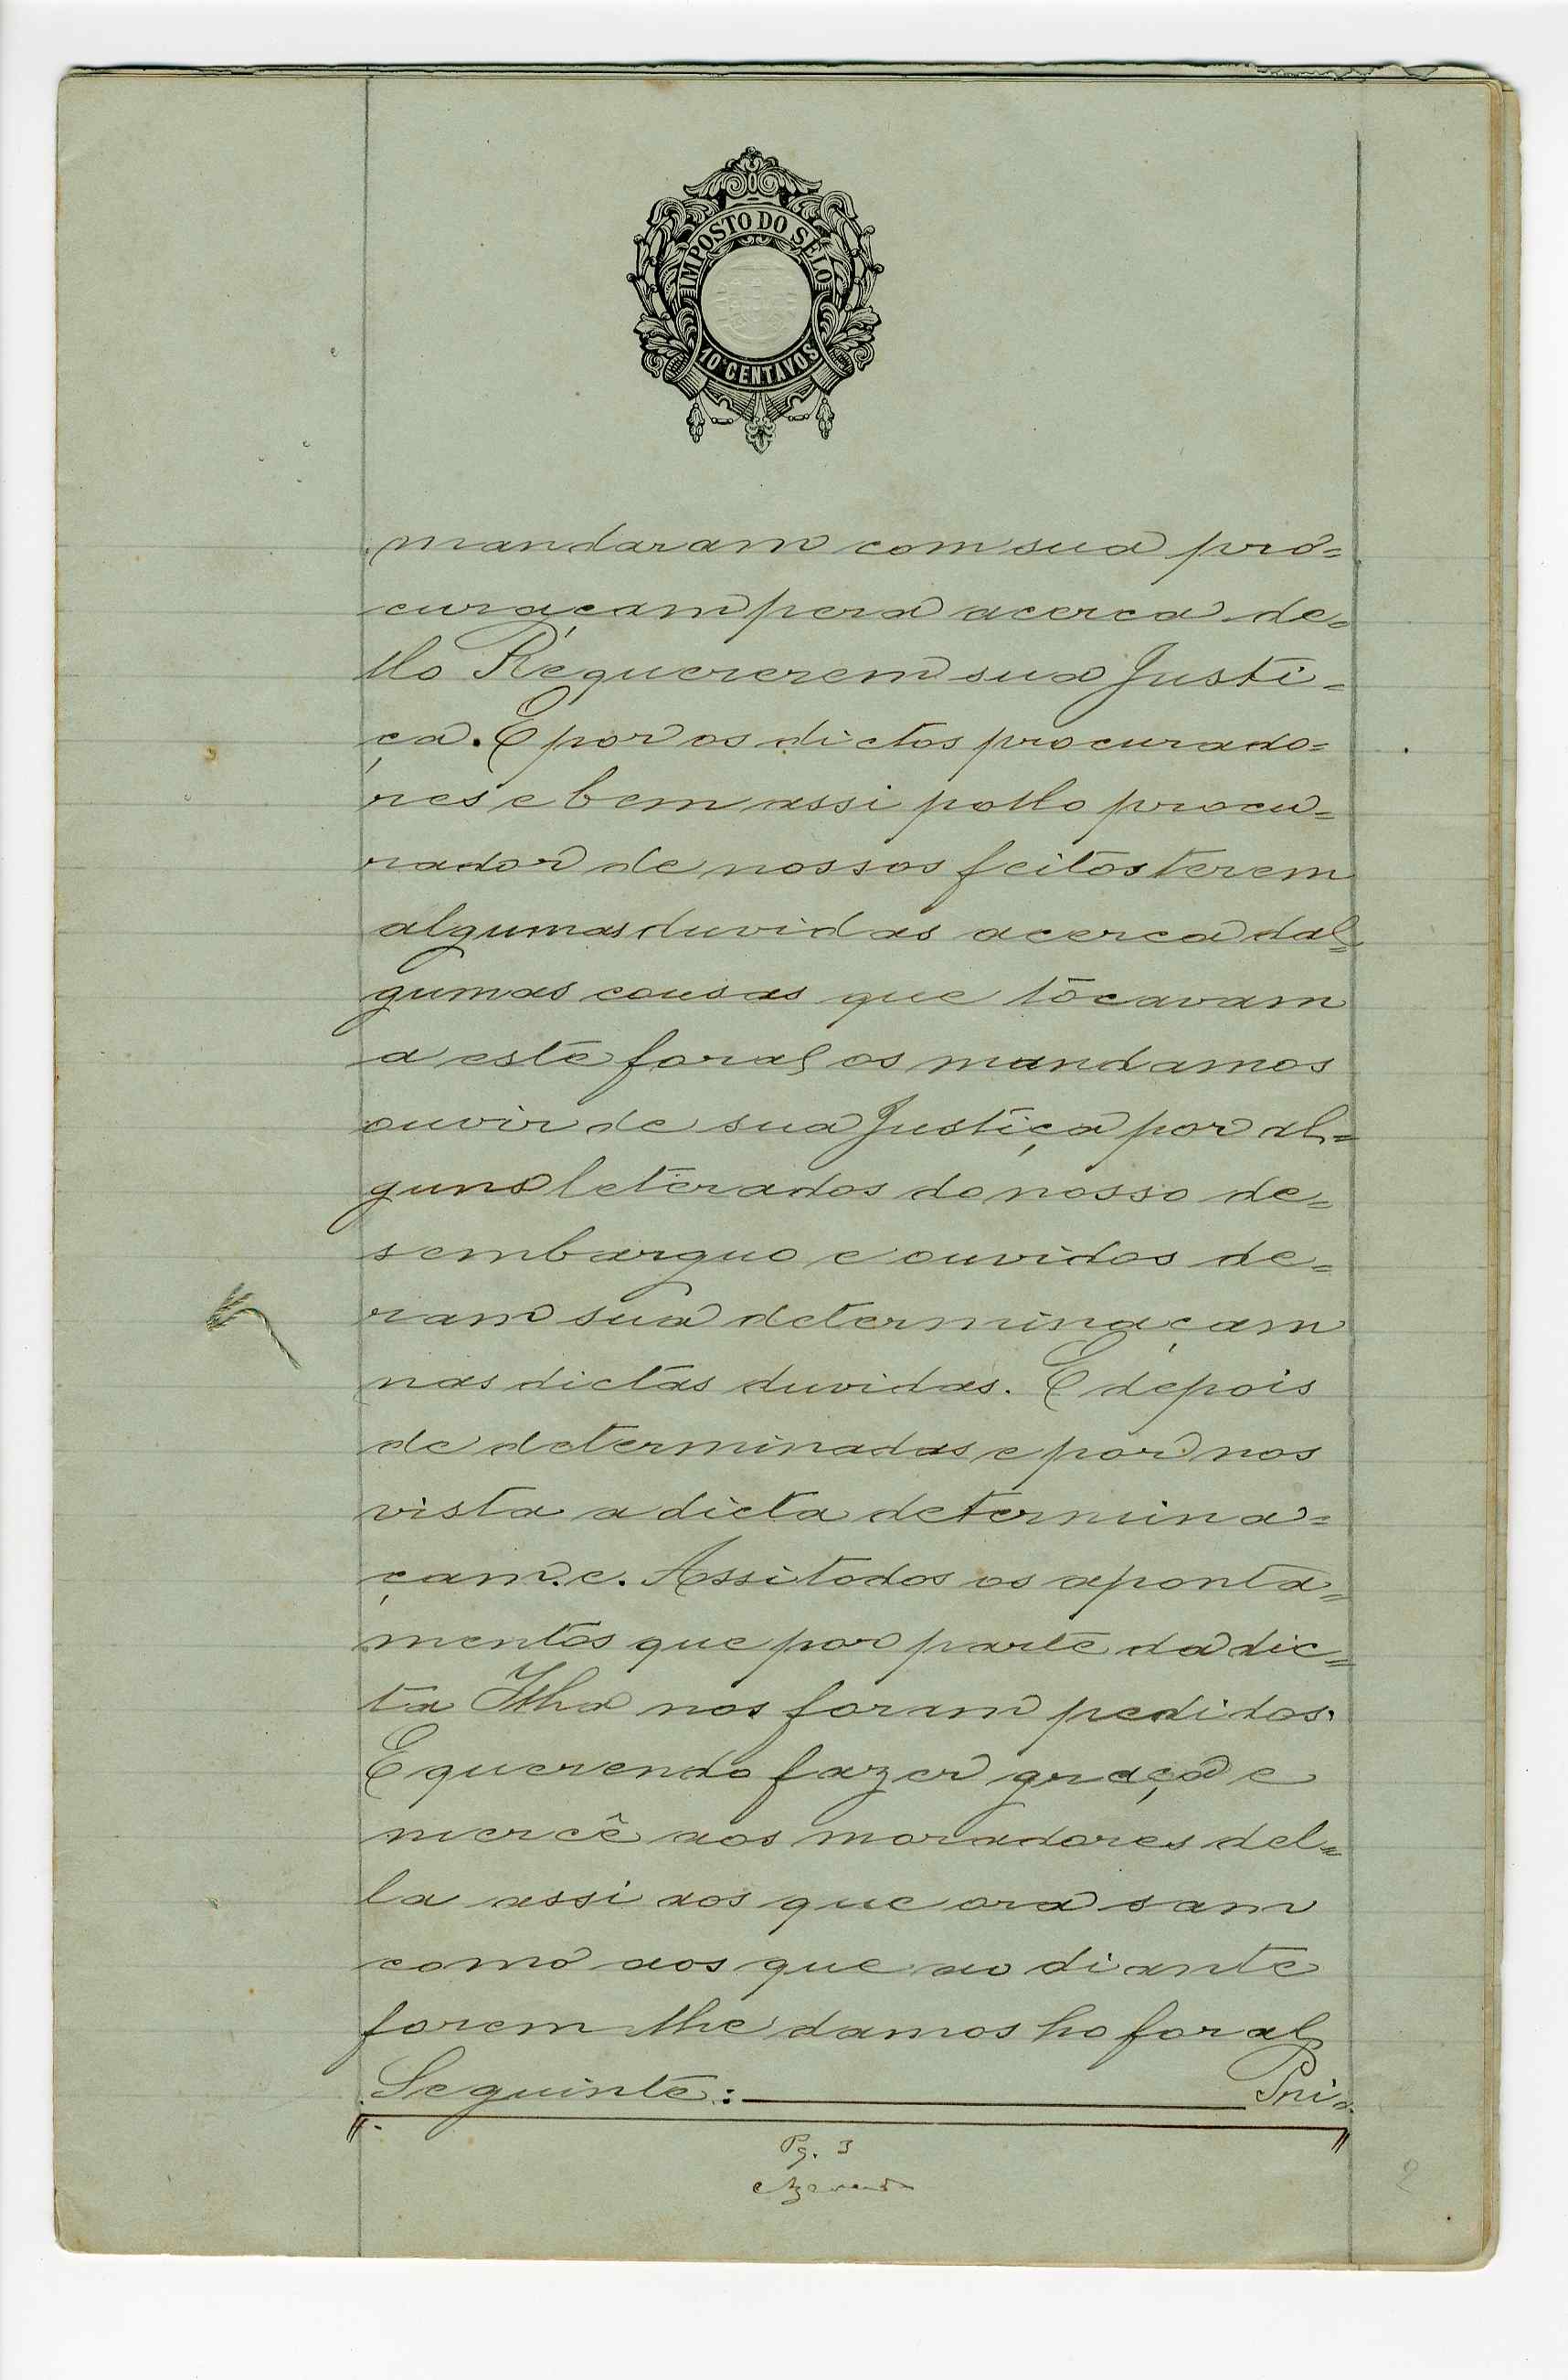 IMPOSTO DO SELO
10 CENTAVOS
mandaram com sua pro=
curaçam pera acerca de=
llo Requererem sua Justi=
ça. E por os dictos procurado=
res e bem assi pollo procu=
rador de nossos feitos terem
algumas duvidas acerca dal=
gumas cousas que tocavam
a este foral os mandamos
ouvir de sua Justiça por al=
guns leterados do nosso de=
sembarguo e ouvidos de=
ram sua determinaçam
nas dictas duvidas. E depois
de determinadas e por nos
vista a dicta determina=
çam. e. Assi todos os aponta=
mentos que por parte da dic=
ta Ilha nos foram pedidos.
E querendo fazer graça e
mercê aos moradores del=
la assi aos que ora sam
como aos que ao diante
forem lhe damos ho foral
Seguinte: Pri=
Pg. 3
Azevedo
2